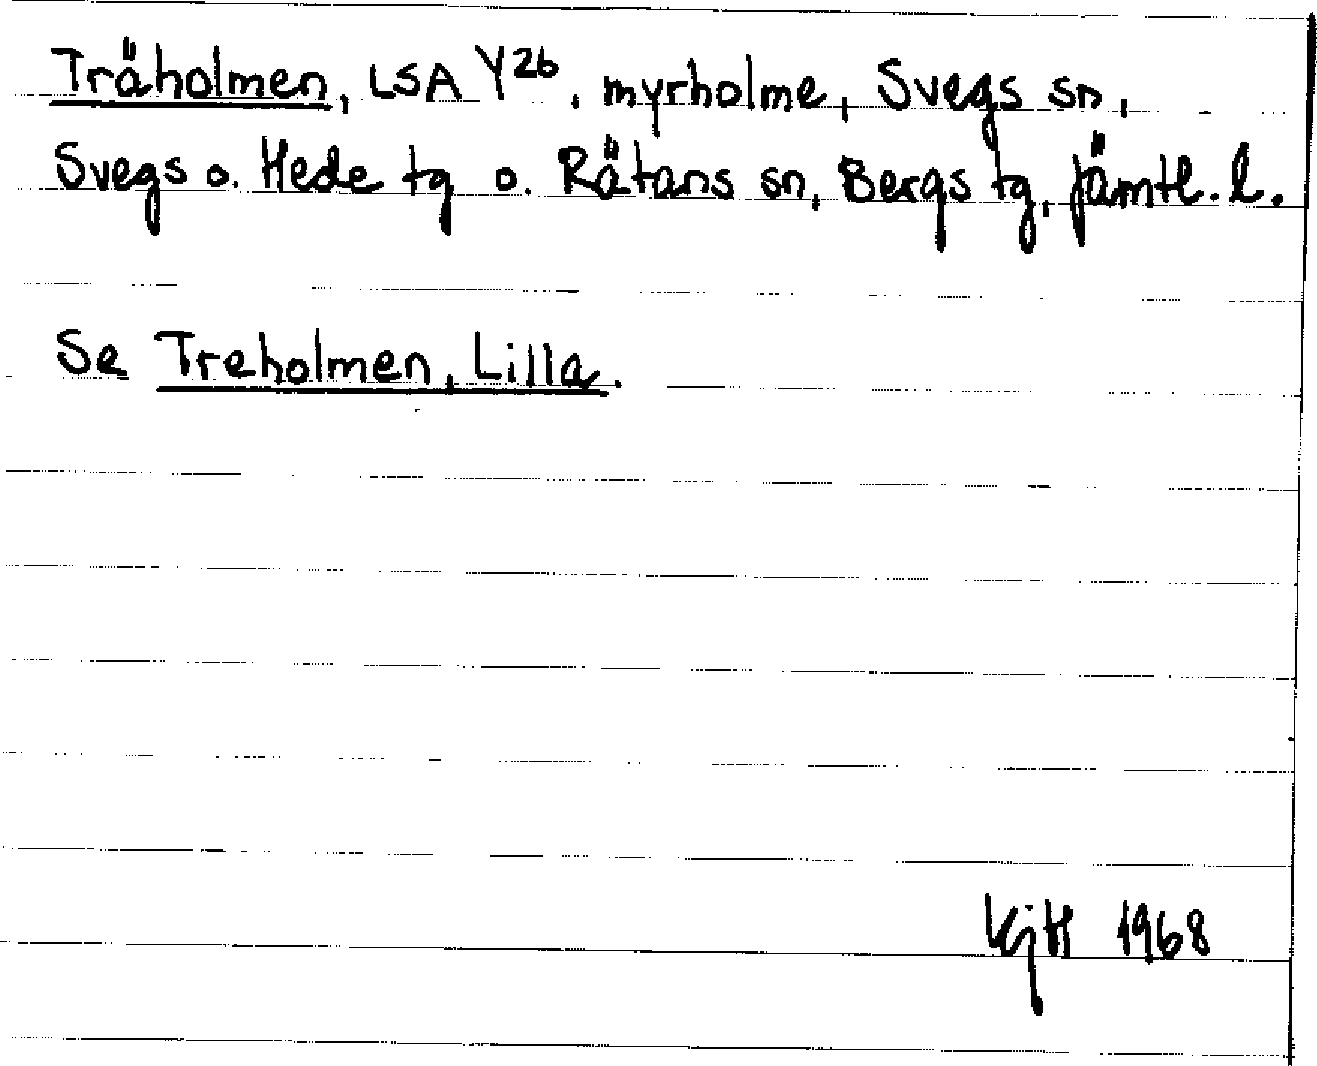 Träholmen, LSA Y26, myrholme, Svegs sn,
Svegs o. Hede tg o. Rätans sn, Bergs tg, Jämtl. l.
Se Treholmen, Lilla.
KjH 1968